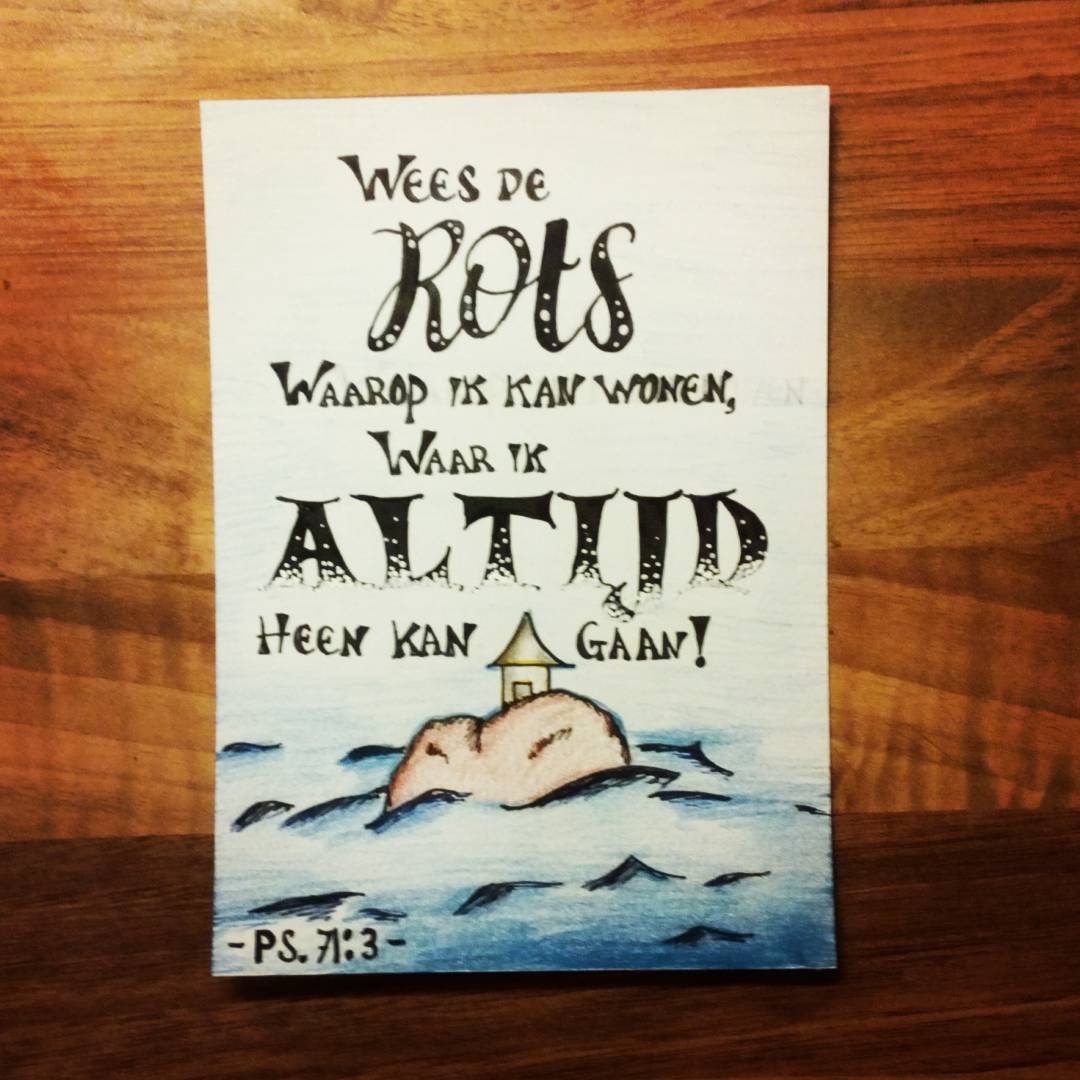 Wees de
Rots
Waarop ik kan wonen,
Waar ik
ALTIJD
Heen kan gaan!
-PS. 71:3-